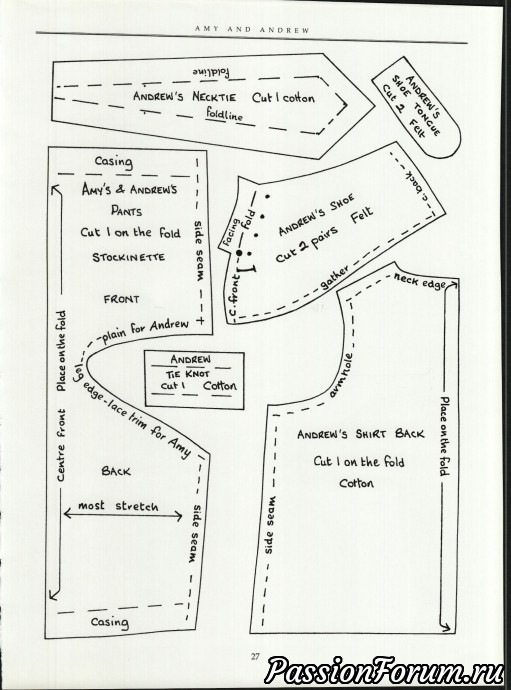 AMY AND ANDREW
foldline
ANDREW'S NECKTIE Cut 1 cotton
foldline
ANDREW'S
SHOE TONGUE
Cut 2 Felt
Casing
AMY'S & ANDREW'S
PANTS
Cut 1 on the fold
STOCKINETTE
FRONT
side seam
Place on the fold
Centre Front
plain for Andrew
leg edge-lace trim for Amy
BACK
most stretch
side seam
Casing
facing
fold
C.front
ANDREW'S SHOE
Cut 2 pairs Felt
c.back
gather
ANDREW
TIE KNOT
Cut 1 Cotton
neck edge
armhole
Place on the fold
ANDREW'S SHIRT BACK
Cut 1 on the fold
Cotton
side seam
27
PassionForum.ru